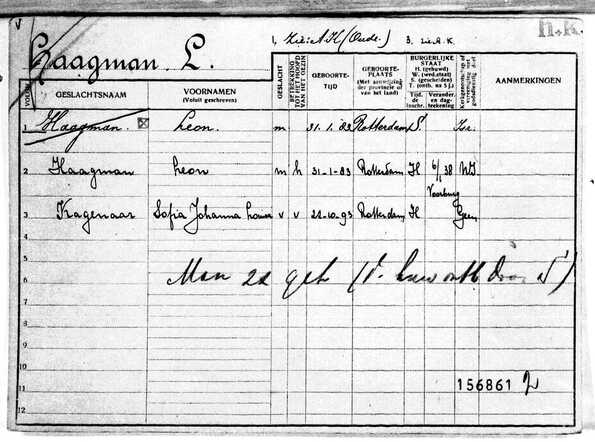 1. Zie A.H (Oude.) 3. zie A.K. h.k.
Haagman, L.
VOLGNo. GESLACHTSNAAM VOORNAMEN (Voluit geschreven) GESLACHT BETREKKING TOT HET HOOFD VAN HET GEZIN GEBOORTE- TIJD GEBOORTE- PLAATS (Met aanwijzing der provincie of van het land) BURGERLIJKE STAAT H. (gehuwd) W. (wed.staat) S. (gescheiden) T. (ontb. na S.j.) Tijd. de inschr. Verander. en dag- teekening AANMERKINGEN
1 Haagman. Leon. m 31. 1. 83 Rotterdam S. Isr.
2 Haagman Leon m h 31-1-83 Rotterdam H 6/1 38 N.I.
Voorburg
3 Kagenaar Sofia Johanna v v 22-10-93 Rotterdam H Geen
4
5
Man 2x geh (1e huw ontb door S)
6
7
8
9
10
11 156861 2
12